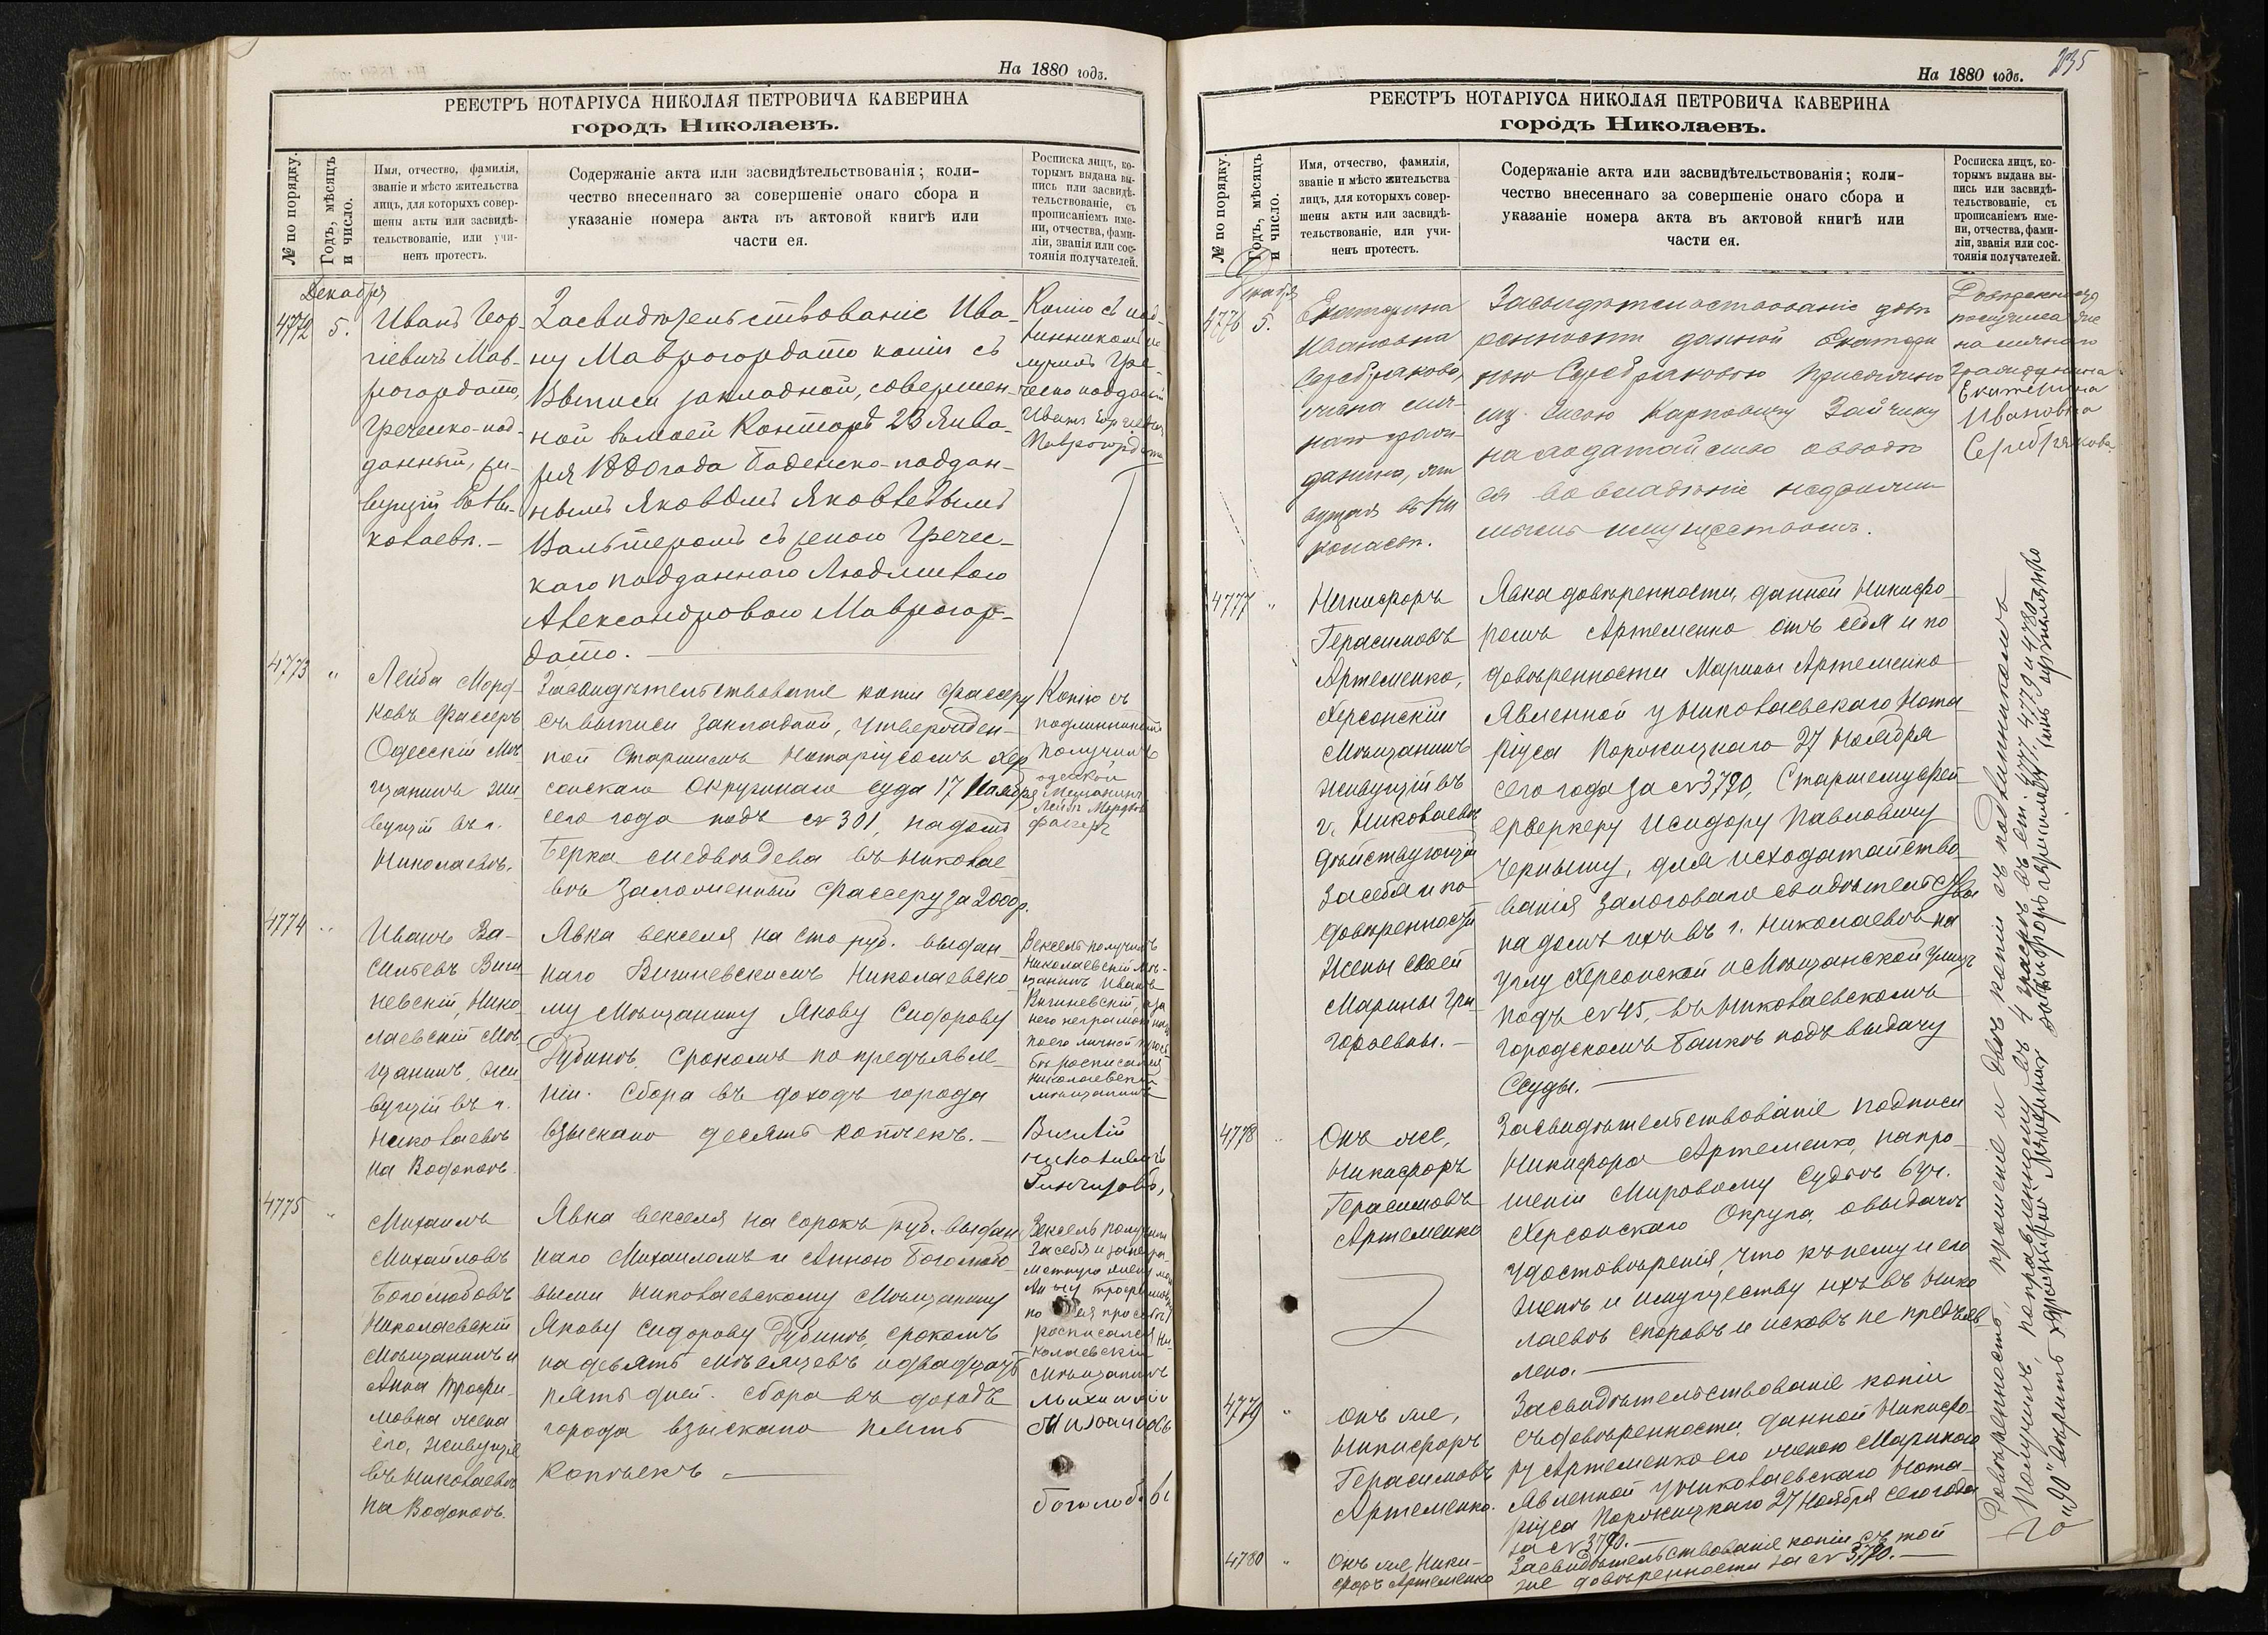 На 1880 годъ.
РЕЕСТРЪ НОТАРІУСА НИКОЛАЯ ПЕТРОВИЧА КАВЕРИНА
городъ Николаевъ.
№ по порядку.
Годъ, мѣсяцъ
и число.
Имя, отчество, фамилія,
званіе и мѣсто жительства
лицъ, для которыхъ совер-
шены акты или засвидѣ-
тельствованіе, или учи-
ненъ протестъ.
Содержаніе акта или засвидѣтельствованія; коли-
чество внесеннаго за совершеніе онаго сбора и
указаніе номера акта въ актовой книгѣ или
части ея.
Росписка лицъ, ко-
торымъ выдана вы-
пись или засвидѣ-
тельствованіе, съ
прописаніемъ име-
ни, отчества, фами-
ліи, званія или сос-
тоянія получателей.
Декабря
4772
5.
Иванъ Геор-
гіевичъ Мав-
рогордато,
Греческо-под-
данный, жи-
вущій въ Ни-
колаевѣ.–
Засвидѣтельствованіе Ива-
ну Маврогордато копіи съ
Выписи закладной, совершен-
ной въ моей Конторѣ 23 Янва-
ря 1880 года Баденско-поддан-
нымъ Яковомъ Яковлевымъ
Вальтеромъ съ женою Гречес-
каго подданнаго Людмилою
Александровою Маврогор-
дато.
Копію съ под-
линникомъ по-
лучилъ Гре-
ческо подданый
Иванъ Георгіевичъ
Маврогордато
4773
"
Лейба Морд-
ковъ Фассеръ
Одесскій Мѣ-
щанинъ жи-
вущій въ г.
Николаевѣ.
Засвидѣтельствованіе копіи Фассеру
съ выписи закладной, утвержден-
ной Старшимъ Нотаріусомъ Хер
сонскаго Окружнаго суда 17 Ноября
сего года подъ № 301, на домъ
Берка Медвѣдева въ Николае
вѣ заложенный Фассеру за 2000 р.
Копію съ
подлинникомъ
получилъ
одесской
Мещанинъ
Лейба Мордковъ
Фасеръ
4774
"
Иванъ Ва-
сильевъ Виги
невскій, Нико
лаевскій Мѣ-
щанинъ, жи-
вущій въ г.
Николаевѣ
на Водопоѣ.
Явка векселя на сто руб. выдан
наго Вигиневскимъ Николаевско
му Мѣщанину Якову Сидорову
Рубинъ, срокомъ по предъявле
ніи. Сбора въ доходъ города
взыскано десять копѣекъ.–
Вексель получилъ
Николаевскій мѣ-
щанинъ Иванъ
Вигиневскій, а за
него неграмотнаго
по его личной прось-
бѣ росписался
Николаевскій
мѣщанинъ
4775
"
Михаилъ
Михайловъ
Боголюбовъ
Николаевскій
Мѣщанинъ и
Анна Трофи-
мовна жена
его, живущіе
въ Николаевѣ
на Водопоѣ.
Явка векселя на сорокъ руб. выдан
наго Михаиломъ и Анною Боголюбо
выми Николаевскому Мѣщанину
Якову Сидорову Рубинъ, срокомъ
на девять мѣсяцевъ и двадцать
пять дней. Сбора въ доходъ
города взыскано пять
копѣекъ –
Вексель получилъ
за себя и за негра-
мотную жену мою
Анну Трофимовну
по ея просьбѣ
росписался Ни-
колаевскій
Мѣщанинъ
Михаилъ
Михайловъ
боголюбовъ
235
На 1880 годъ.
РЕЕСТРЪ НОТАРІУСА НИКОЛАЯ ПЕТРОВИЧА КАВЕРИНА
городъ Николаевъ.
№ по порядку.
Годъ, мѣсяцъ
и число.
Имя, отчество, фамилія,
званіе и мѣсто жительства
лицъ, для которыхъ совер-
шены акты или засвидѣ-
тельствованіе, или учи-
ненъ протестъ.
Содержаніе акта или засвидѣтельствованія; коли-
чество внесеннаго за совершеніе онаго сбора и
указаніе номера акта въ актовой книгѣ или
части ея.
Росписка лицъ, ко-
торымъ выдана вы-
пись или засвидѣ-
тельствованіе, съ
прописаніемъ име-
ни, отчества, фами-
ліи, званія или сос-
тоянія получателей.
Декабря
4776
5.
Екатерина
Ивановна
Серебрякова,
жена лич-
наго граж-
данина, жи
вущая въ Ни
колаевѣ.
Засвидѣтельствованіе довѣ
ренности данной Екатери
ною Серебряковою Присяжно
му Карповичу Зайчику
на ходатайство о вводѣ
ея во владѣніе недвижи
мымъ имуществомъ.
Довѣренность
получила
личнаго
гражданина
Екатерина
Ивановна
Серебрякова
4777
"
Никифоръ
Герасимовъ
Артеменко,
Херсонскій
Мѣщанинъ
живущій въ
г. Николаевѣ
дѣйствующій
за себя и по
довѣренности
жены своей
Марины Гри-
горьевны.–
Явка довѣренности, данной Никифо
ромъ Артеменко отъ себя и по
довѣренности Марины Артеменко
явленной у Николаевскаго Нота
ріуса Порожицкаго 27 Ноября
сего года за № 3790, Старшему Фей-
ерверкеру Исидору Павловичу
Чернышу, для исходатайство
ванія залоговаго свидѣтельства
на домъ ихъ въ г. Николаевѣ на
углу Херсонской и Мѣщанской улицъ
подъ № 45, въ Николаевскомъ
Городскомъ Банкѣ подъ выдачу
Ссуды.
4778
"
Онъ же,
Никифоръ
Герасимовъ
Артеменко
Засвидѣтельствованіе подписи
Никифора Артеменко, на про-
шеніи Мировому Судьѣ 6 уч.
Херсонскаго Округа, о выдачѣ
удостовѣренія, что къ нему и его
женѣ и имуществу ихъ въ Нико
лаевѣ споровъ и исковъ не предъяв
лено.
4779
"
Онъ же,
Никифоръ
Герасимовъ
Артеменко.
Засвидѣтельствованіе копіи
съ довѣренности, данной Никифо-
ру Артеменко его женою Мариною
явленной у Николаевскаго Нота-
ріуса Порожицкаго 27 Ноября сего года
за № 3790.–
4780
"
Онъ же, Ники-
форъ Артеменко
Засвидѣтельствованіе копіи съ той
же довѣренности за № 3790.–
Довѣренность, прошеніе и двѣ копіи съ подлинникомъ
получилъ, поправленному въ 4 графѣ въ ст. 4777, 4779 и 4780
"90" вѣрить